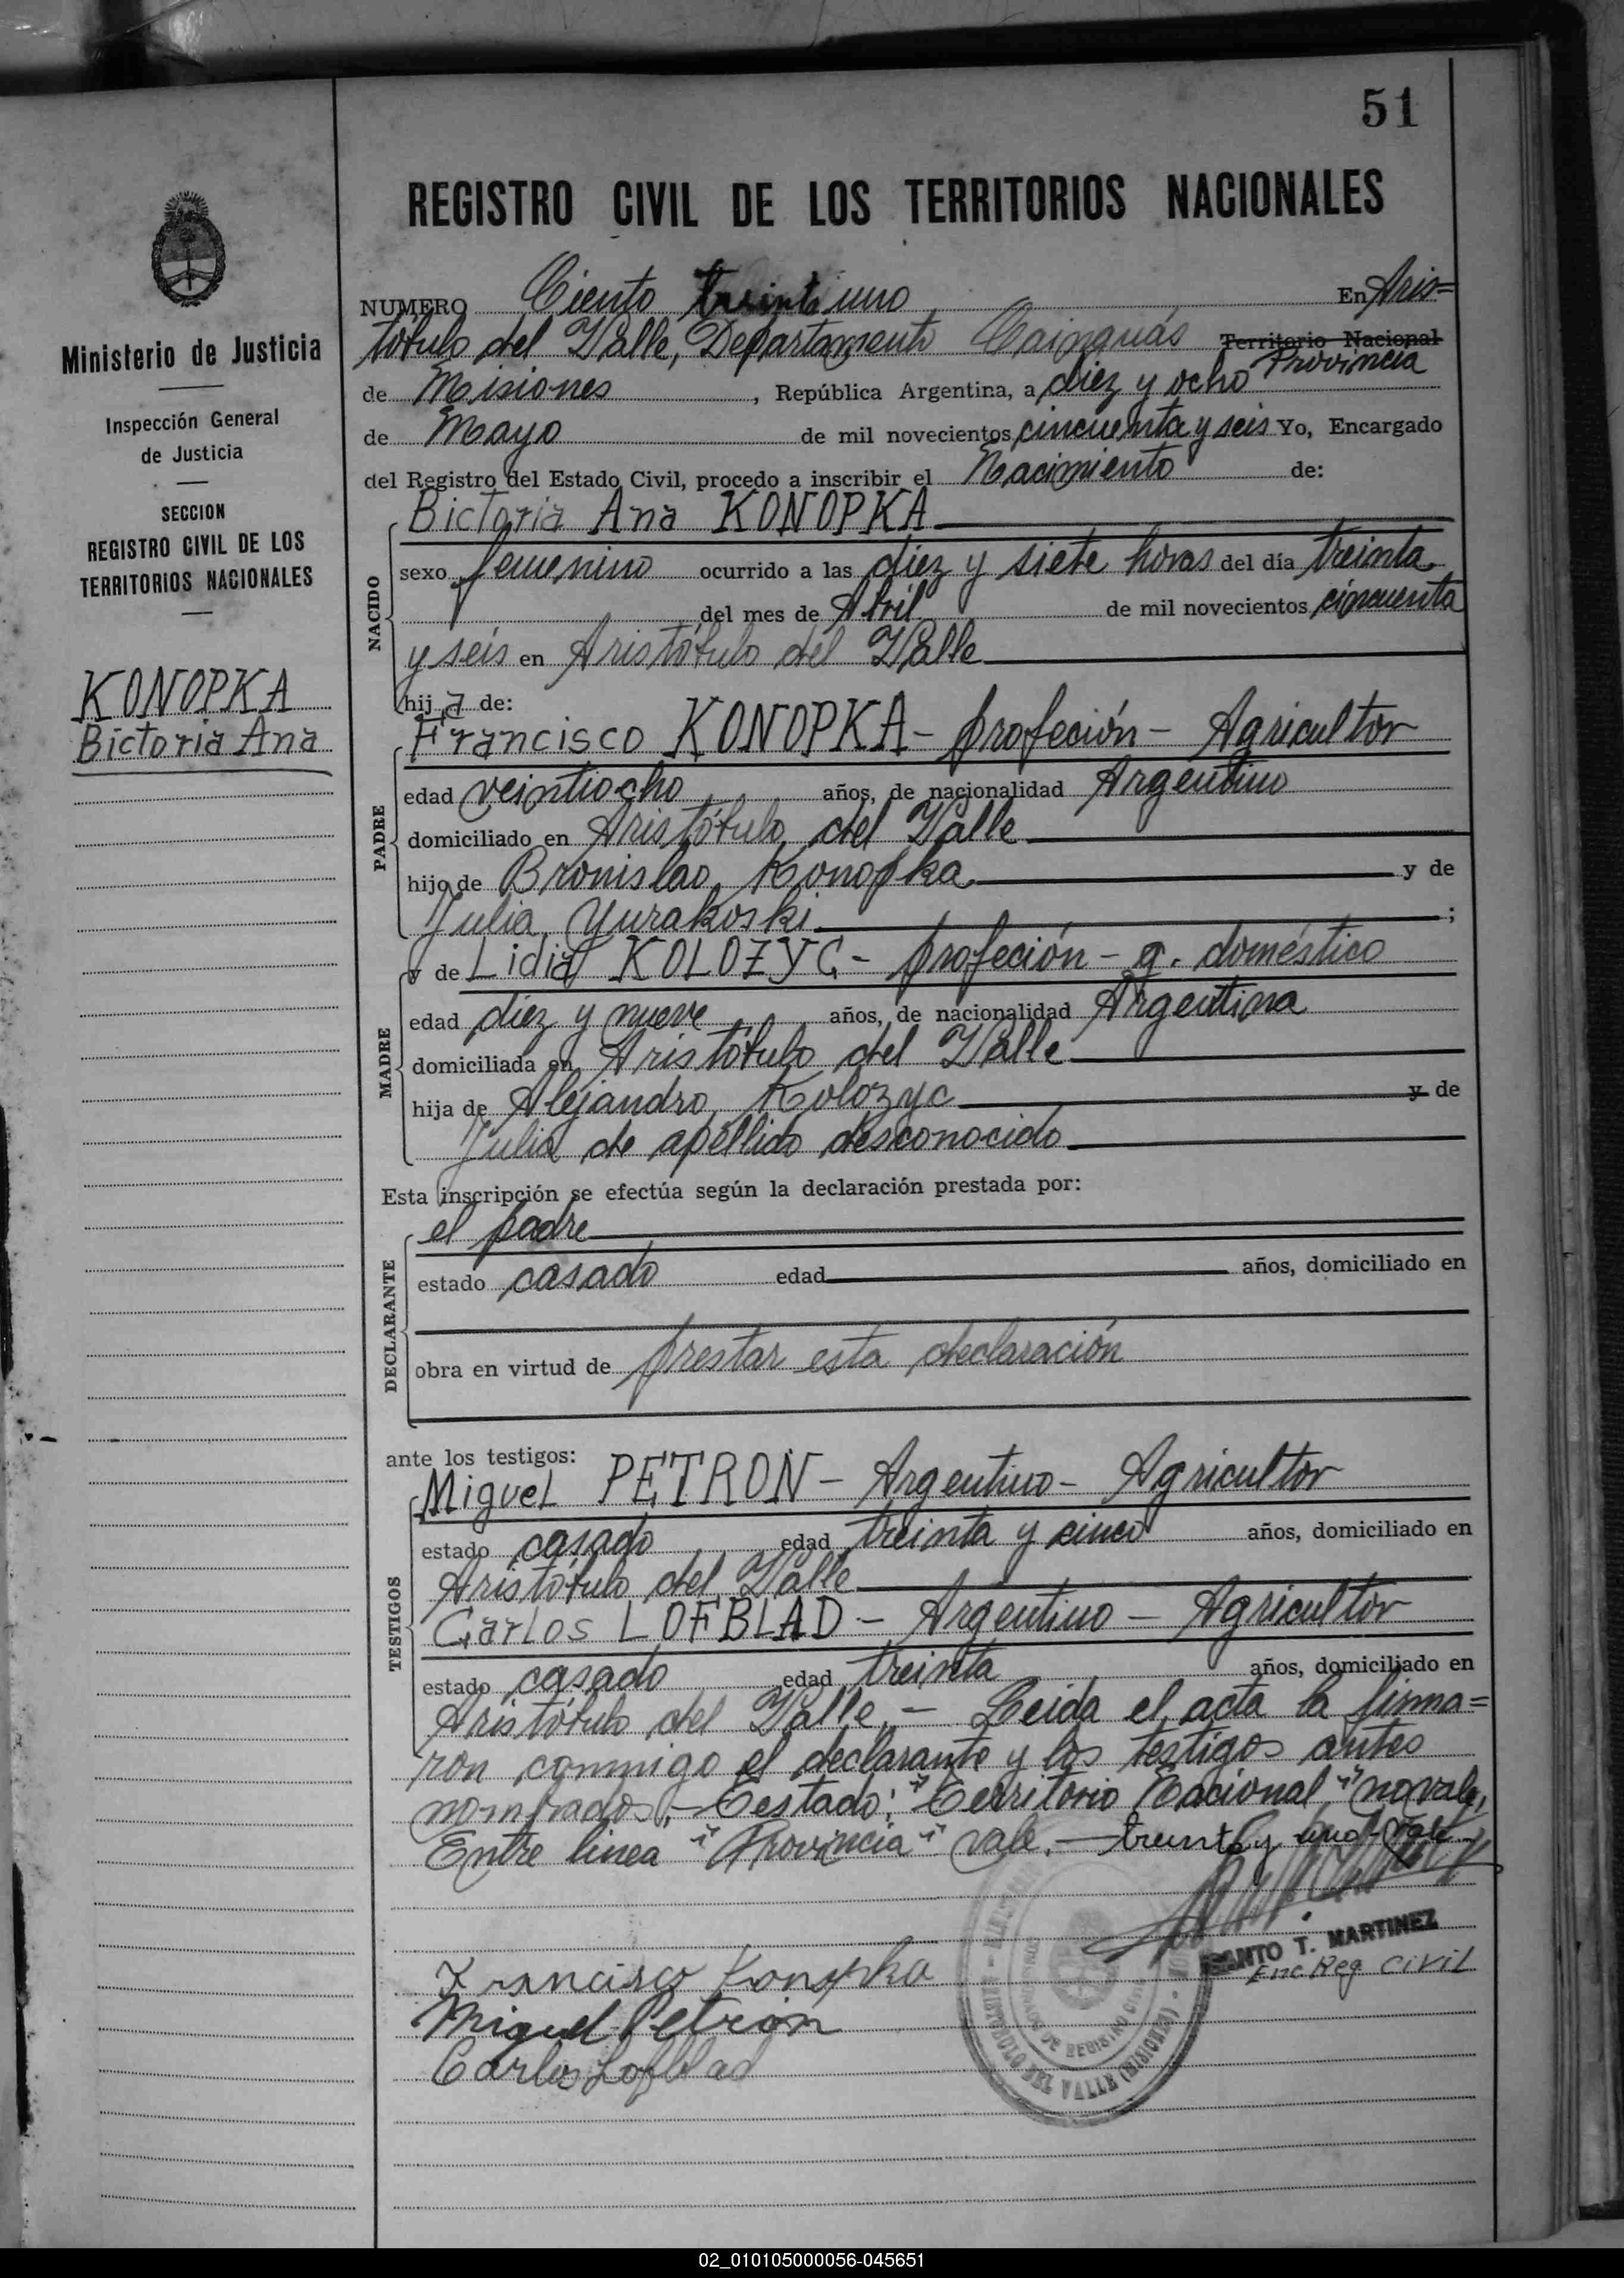 51
REGISTRO CIVIL DE LOS TERRITORIOS NACIONALES
Ministerio de Justicia
Inspección General
de Justicia
SECCION
REGISTRO CIVIL DE LOS
TERRITORIOS NACIONALES
KONOPKA
Bictoria Ana
NUMERO Ciento treinti uno En Aris=
tóbulo del Valle, Departamento Cainguás Territorio Nacional
Provincia
de Misiones, República Argentina, a diez y ocho
de Mayo de mil novecientos cincuenta y seis Yo, Encargado
del Registro del Estado Civil, procedo a inscribir el Nacimiento de:
NACIDO
Bictoria Ana KONOPKA
sexo femenino ocurrido a las diez y siete horas del día treinta
del mes de Abril de mil novecientos cincuenta
y seis en Aristóbulo del Valle
hija de:
PADRE
Francisco KONOPKA - profeción - Agricultor
edad veintiocho años, de nacionalidad Argentino
domiciliado en Aristóbulo del Valle
hijo de Bronislao Konopka y de
Julia Yurakoski;
MADRE
y de Lidia KOLOZYC - profeción - q. doméstico
edad diez y nueve años, de nacionalidad Argentina
domiciliada en Aristóbulo del Valle
hija de Alejandro Kolozyc y de
Julia de apellido desconocido
Esta inscripción se efectúa según la declaración prestada por:
DECLARANTE
el padre
estado casado edad años, domiciliado en
obra en virtud de prestar esta declaración
ante los testigos:
TESTIGOS
Miguel PETRON - Argentino - Agricultor
estado casado edad treinta y cinco años, domiciliado en
Aristóbulo del Valle
Carlos LOFBLAD - Argentino - Agricultor
estado casado edad treinta años, domiciliado en
Aristóbulo del Valle - Leida el acta la firma=
ron conmigo el declarante y los testigos antes
nombrados, - Testado: "Territorio Nacional" no vale,
Entre linea "Provincia" vale. - treinta y uno - vale
SANTO T. MARTINEZ
Enc Reg Civil
Francisco Konopka
Miguel Petron
Carlos Lofblad
ARISTOBULO DEL VALLE (MISIONES)
DE REGISTRO CIVIL
02_010105000056-045651